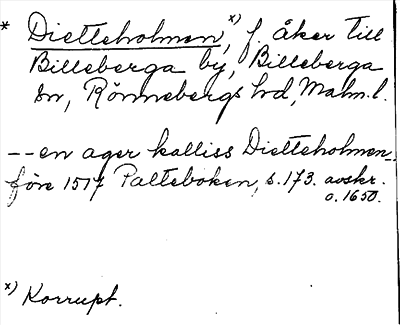 * Dietteholmen,x) f. åker till
Billeberga by, Billeberga
sn, Rönnebergs hd, Malm. l.
-- en ager kalliss Dietteholmen --
före 1517 Palteboken, s. 173. avskr.
o. 1650.
x) Korrupt.